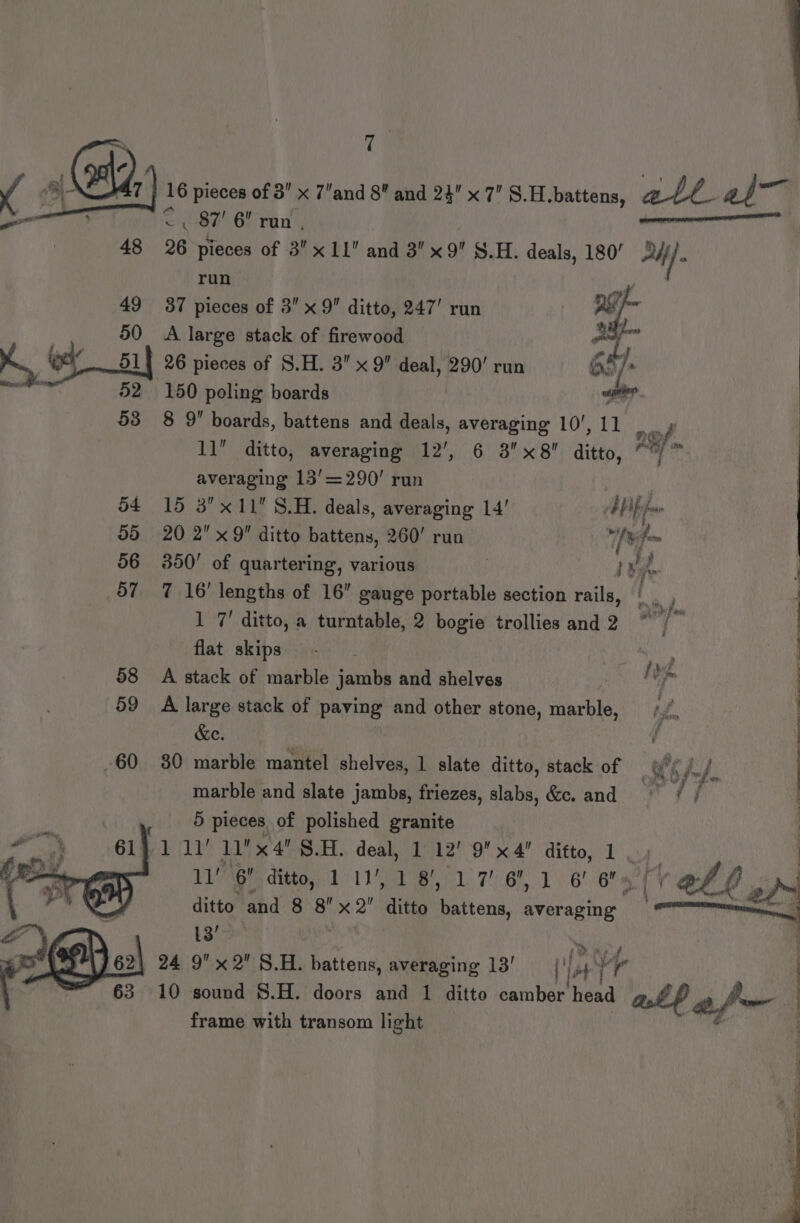 7
47 16 pieces of 3" x 7" and 8" and 2½" x 7" S.H. battens,
87' 6" run
48 26 pieces of 3" x 11" and 3" x 9" S.H. deals, 180'
run
49 37 pieces of 3" x 9" ditto, 247' run
50 A large stack of firewood
51 26 pieces of S.H. 3" x 9" deal, 290' run 65/-
52 150 poling boards
53 8 9" boards, battens and deals, averaging 10', 11
11" ditto, averaging 12', 6 3" x 8" ditto,
averaging 13' = 290' run
54 15 3" x 11" S.H. deals, averaging 14'
55 20 2" x 9" ditto battens, 260' run
56 350' of quartering, various
57 7 16' lengths of 16" gauge portable section rails,
1 7' ditto, a turntable, 2 bogie trollies and 2
flat skips
58 A stack of marble jambs and shelves
59 A large stack of paving and other stone, marble,
&c.
60 30 marble mantel shelves, 1 slate ditto, stack of
marble and slate jambs, friezes, slabs, &c. and
5 pieces of polished granite
61 1 11' 11" x 4" S.H. deal, 1 12' 9" x 4" ditto, 1
11' 6" ditto, 1 11', 1 8', 1 7' 6", 1 6' 6"
ditto and 8 8" x 2" ditto battens, averaging
13'
62 24 9" x 2" S.H. battens, averaging 13'
63 10 sound S.H. doors and 1 ditto camber head
frame with transom light